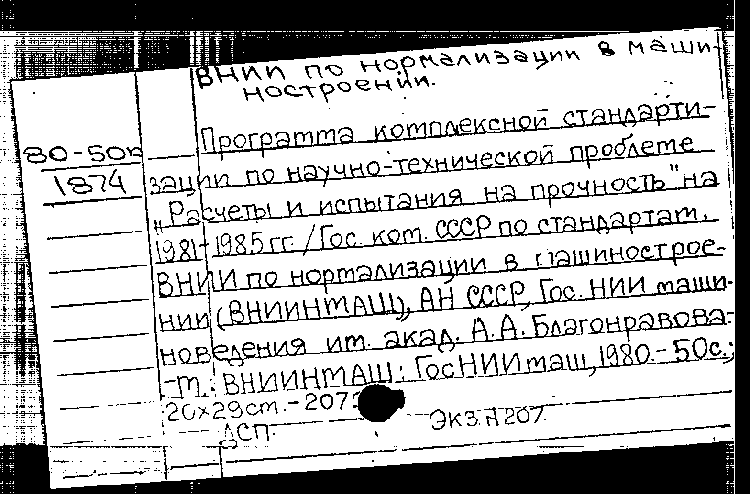 ВНИИ по нормализации в маши-
ностроении.
80-50к
1874
Программа комплексной стандарти-
зации по научно-технической проблеме
„Расчеты и испытания на прочность" на
1981-1985 гг. / Гос. ком. СССР по стандартам.
ВНИИ по нормализации в машинострое-
нии (ВНИИНМАШ), АН СССР, Гос. НИИ маши-
новедения им. акад. А.А. Благонравова.-
-М.: ВНИИНМАШ: ГосНИИмаш, 1980.- 50с.;
20х29см.- 207
ДСП.
Экз. №207